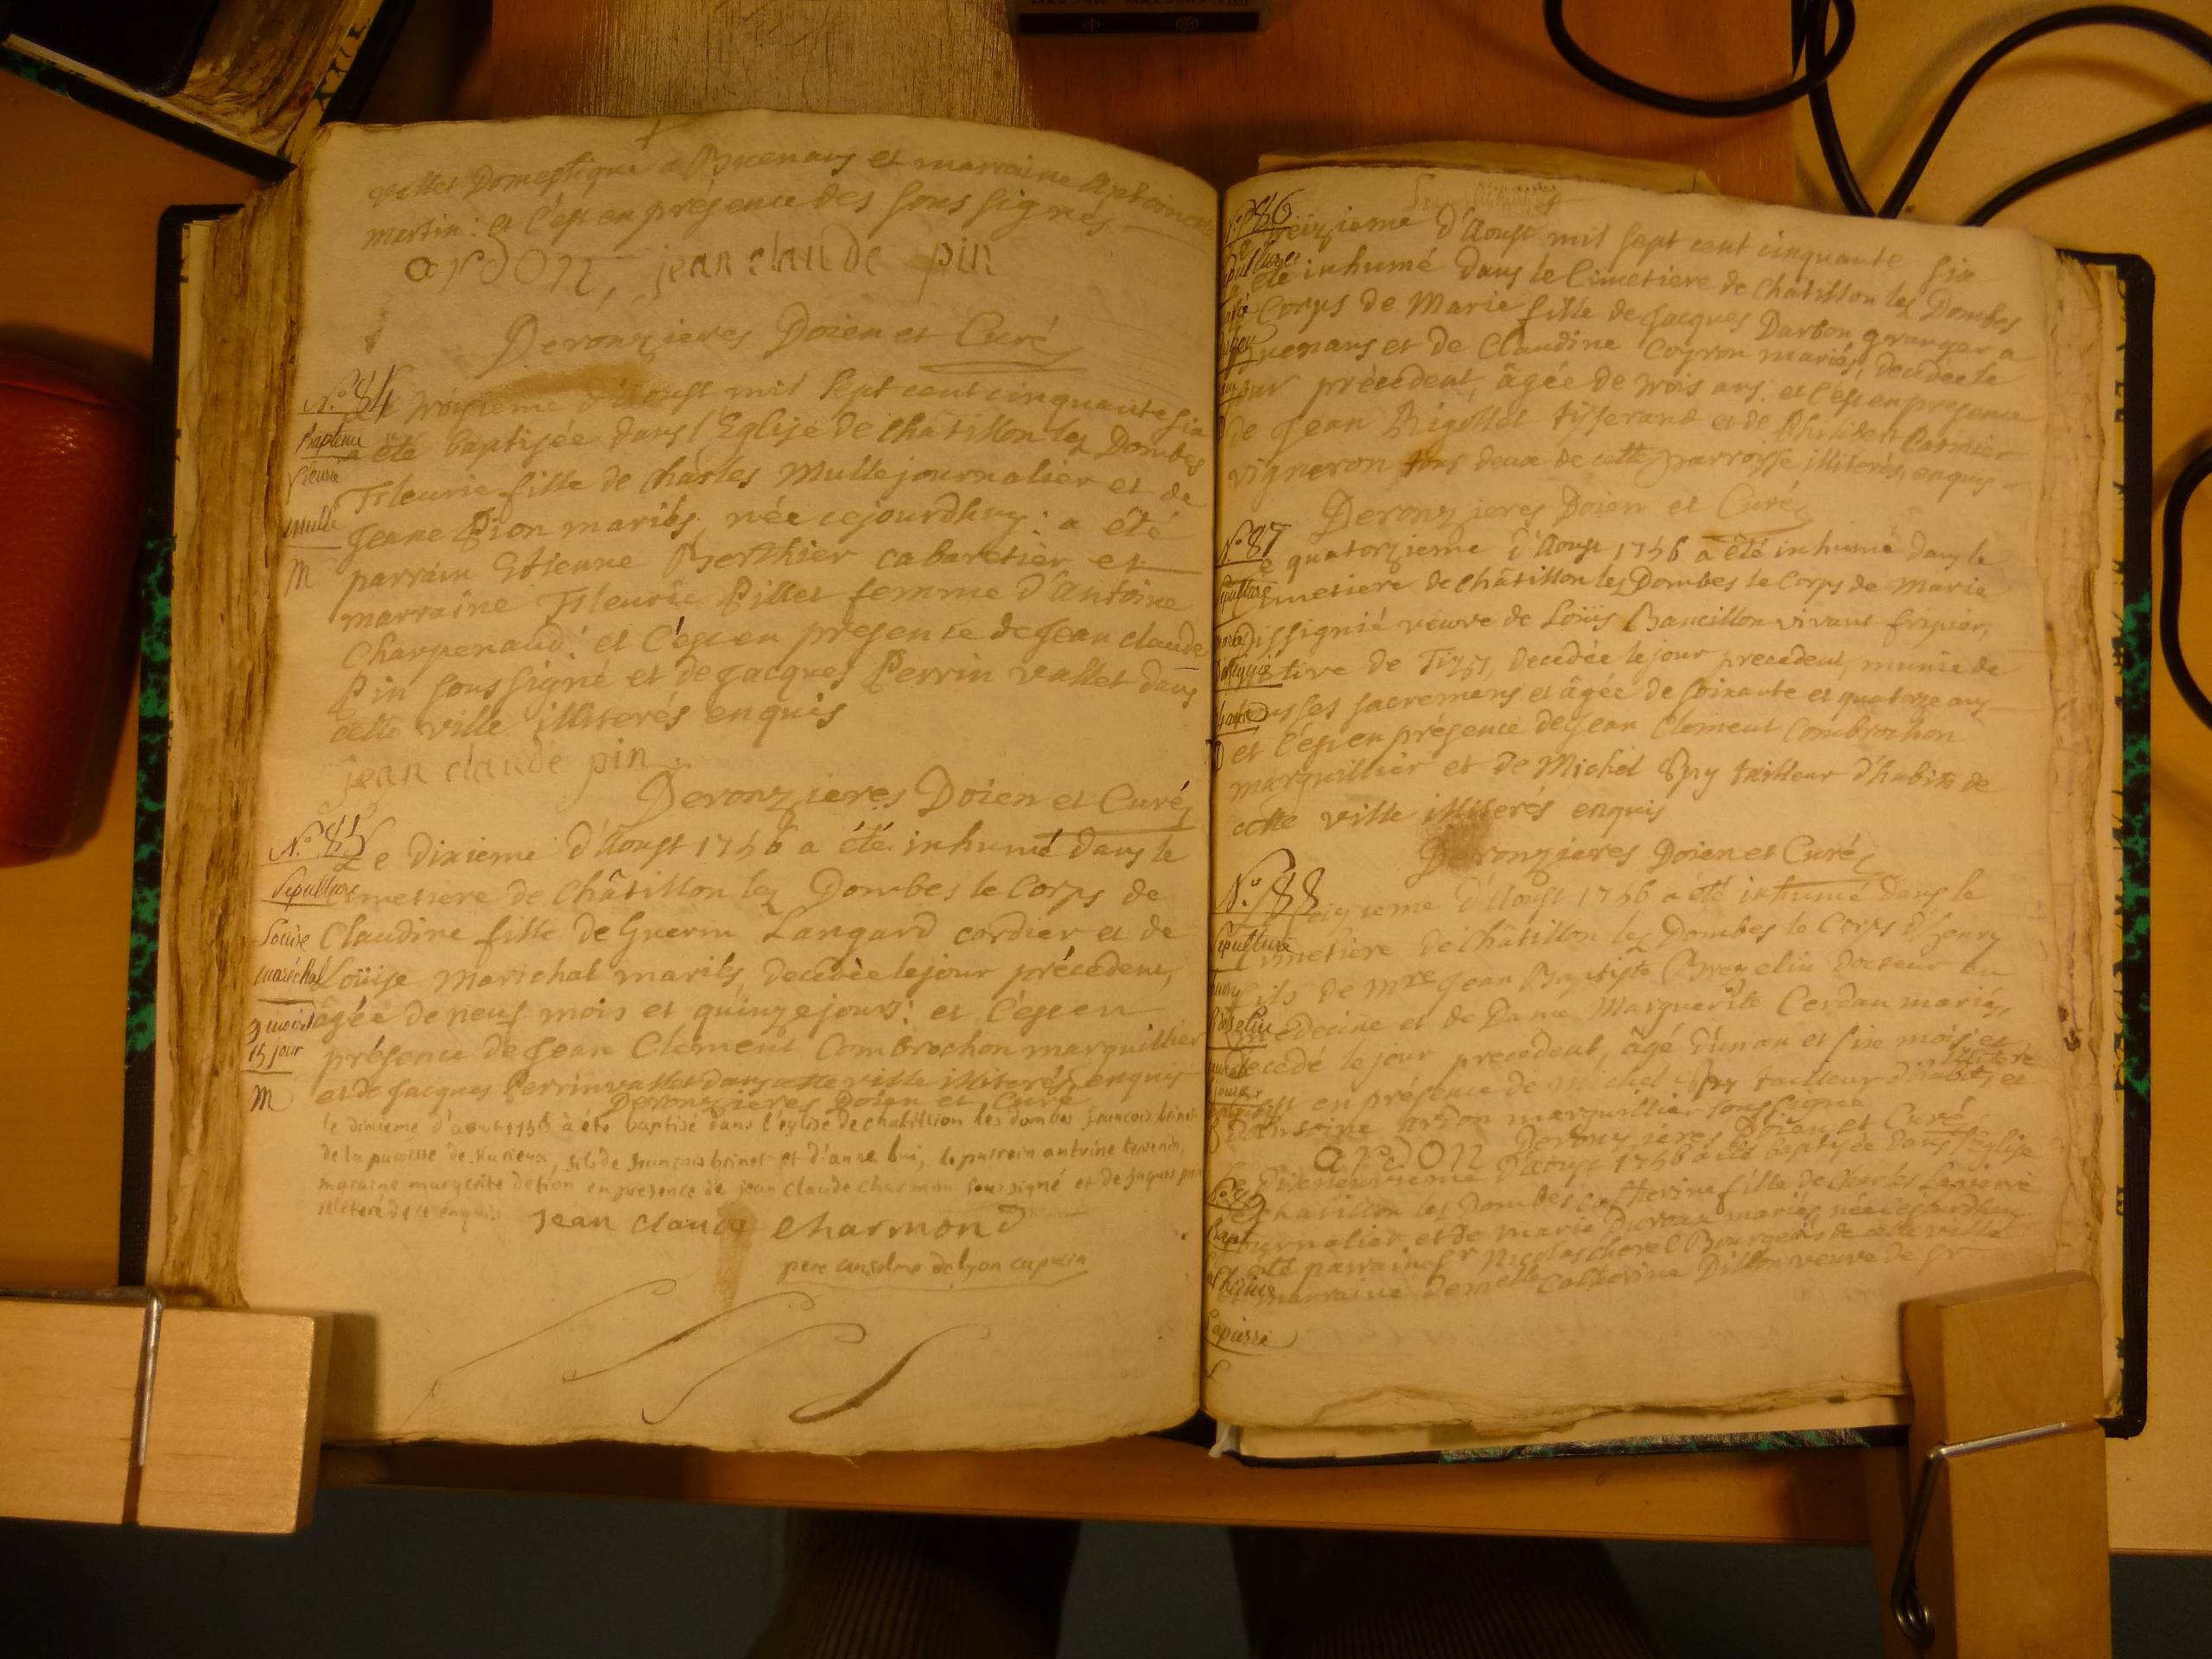 vallet Domestique a Bucenans et marraine Antoinette
martin: et c'est en présence des soussignés
ardon, jean claude pin
Deronzieres Doien et Curé
N.º 84
Le troizieme d'Aoust mil sept cent cinquante six
Bapteme
a été baptisée dans l'Eglise de châtillon lez Dombes
fleurie
Fsleurie fille de charles Mulle journalier et de
mulle
Jeane Pion mariés, née cejourdhuy: a été
M
parrain Etienne Berthier cabaretier et
marraine Fsleurie Pillet femme d'Antoine
Charpenaud: et c'est en présence de Jean claude
Pin soussigné et de Jacques Perrin vallet dans
cette ville illiterés enquis
jean claude pin
Deronzieres Doien et Curé
N.º 85
Le Dixieme d'Aoust 1756 a été inhumé dans le
Sepulture
cimetiere de Châtillon lez Dombes le Corps de
Louise
Claudine fille de Guerin Langard cordier et de
maréchal
Loüise Marichal mariés, decédée le jour précédent,
9 mois
âgée de neuf mois et quinze jours: et c'est en
15 jour
présence de Jean Clement Combrochon marguillier
M
et de Jacques Perrin vallet dans cette ville illiterés enquis
Deronzieres Doien et Curé
le dixieme d'aout 1756 à été baptisé dans l'église de chatillion les dombes françois brinet
de la paroisse de, fils de françois brinet et d'anne bui, le parrain antoine tevenin,
maraine margerite detion en presence de jean claude charmon soussigné et de jaques
illeteré de ce enquis jean claude charmond
pere anselme de lyon capucin
N.º 86
Le treizieme d'Aoust mil sept cent cinquante six
Sepulture
a été inhumé dans le Cimetiere de Châtillon lez Dombes
le Corps de Marie fille de Jacques Darbon granger a
Bucenans et de Claudine Coyron mariés, decédée le
jour précédent, âgée de trois ans: et c'est en présence
de Jean Rigollet tisserand et de Philibert Carmier
vigneron tous deux de cette parroisse illiterés, enquis
Deronzieres Doien et Curé
N.º 87
Le quatorzieme d'Aoust 1756 a été inhumé dans le
Sepulture
cimetiere de Châtillon lez Dombes le Corps de Marie
Dissignié veuve de Loüis Bancillon vivant fripier,
native de Tizy, decédée le jour precedent, munie de
tous ses sacremens et âgée de soixante et quatorze ans
et c'est en présence de Jean Clement Combrochon
marguillier et de Michel Spy tailleur d'habits de
cette ville illiterés enquis
Deronzieres Doien et Curé
N.º 88
Le seizieme d'Aoust 1756 a été inhumé dans le
Sepulture
cimetiere de Châtillon lez Dombes le Corps d'henry
fils de Mre Jean Baptiste Brezelin Docteur en
medecine et de Dame Marguerite Cerdan mariés,
decedé le jour precedent, âgé d'un an et six mois: et
illiteré
c'est en présence de Michel Spy tailleur d'habits, et
d'Antoine ardon marguillier soussigné
ardon Deronzieres Doien et Curé
N.º 89
Le d'Aoust 1756 a été baptisée dans l'Eglise
de Châtillon lez Dombes catherine fille de Charles Lapierre
Journalier et de marie Duroux mariés, née cejourdhuy
été parrain Sr Nicolas cherel Bourgeois de cette ville
catherine
et marraine demelle Catherine Dillon veuve de Sr
Lapierre